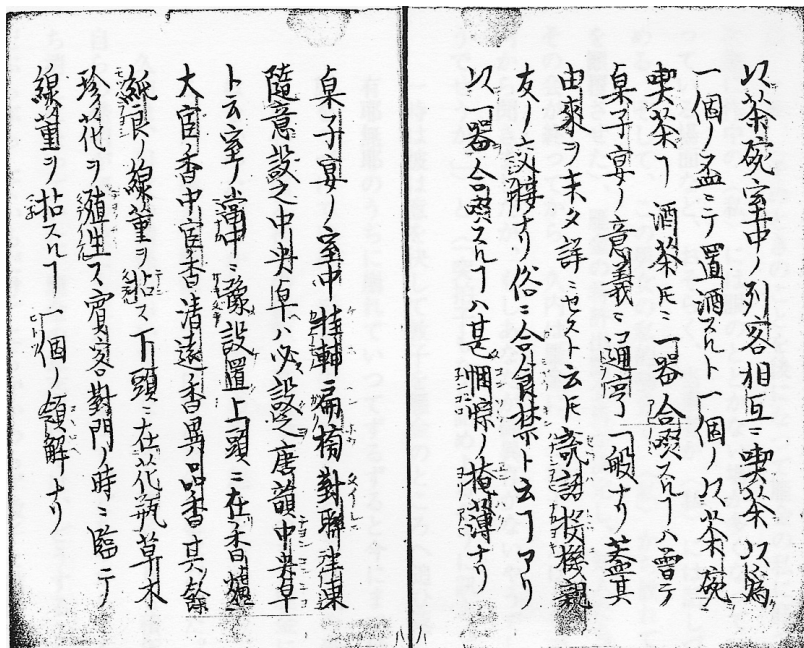 以茶碗室中ノ列客相互ニ喫茶以為
一個ノ盃ニテ置酒スルト一個ノ以茶碗
喫茶ヿ酒茶𪜈ニ一器合啜スルヿハ曽テ
桌子宴ノ意義ニ通亨一般ナリ蓋其
由来ヲ未タ詳ニセスト云𪜈 投機親
友ノ交接ナリ俗ニ合食禁ト云ヿアリ
以一器ノ合啜スルヿハ甚 ノ掩薄ナリ
桌子宴ノ室中掛軸ニ扁楣對聯
随意設之中央卓ハ必設之唐韻中央卓
ト云室ノ當中ニ豫設置上頭ニ在香爐
大官香中官香清遠香異品香其餘
紙良ノ線薫ヲ拈ス下頭ニ在花瓶草木
珍花ヲ殖生ス賓客對門ノ時ニ臨テ
線薫ヲ拈スルヿ一個ノ領解ナリ